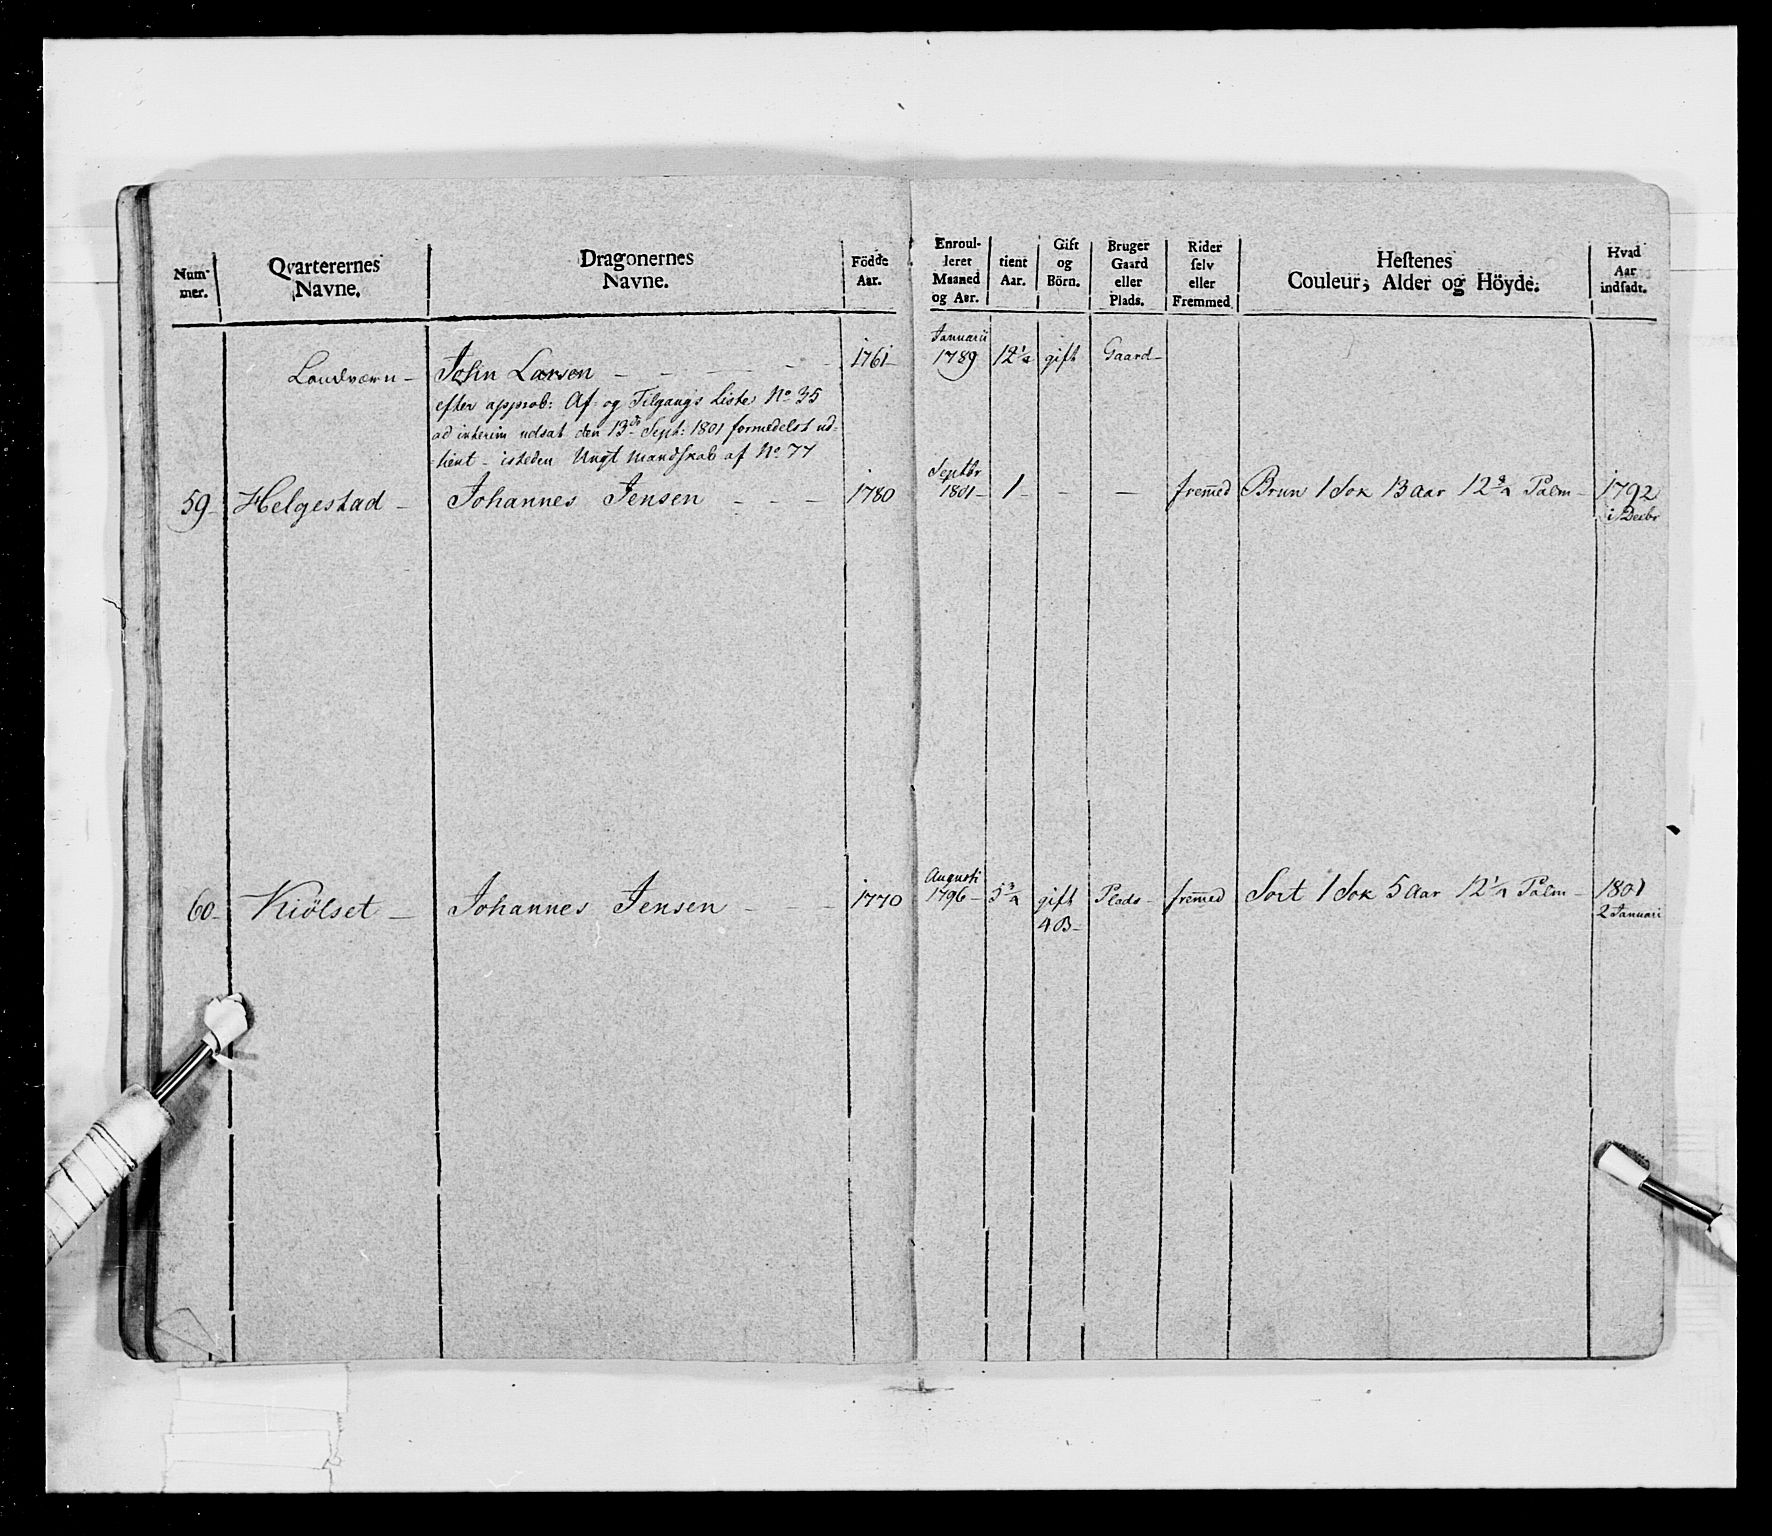 Num-
mer.
Qvarterernes
Navne.
Dragonernes
Navne.
Födde
Aar.
Enroul-
leret
Maaned
og Aar.
tient
Aar.
Gift
og
Börn.
Bruger
Gaard
eller
Plads.
Rider
selv
eller
Fremmed
Hestenes
Couleur, Alder og Höyde.
Hvad
Aar
indsadt.
Januarii
Landværn - John Larsen - - - - - 1761 1789 12 1/2 gift Gaard -
efter approb: Af- og Tilgangs Liste No 35
ad interim udsat den 13de Sept: 1801 formedelst ud-
tient - isteden Ungt Mandskab af No 77
Septbr
59 - Helgestad - Johannes Jensen - - - 1780 1801 - 1 - - - fremed Brun 1 Sok 13 Aar 12 3/4 Palm - 1792
i Decbr
Augusti
60 - Kiölset - Johannes Jensen - - - 1770 1796 - 5 3/4 gift Plads - fremed Sort 1 Sok 5 Aar 12 1/2 Palm - 1801
4 B - 2 Januari